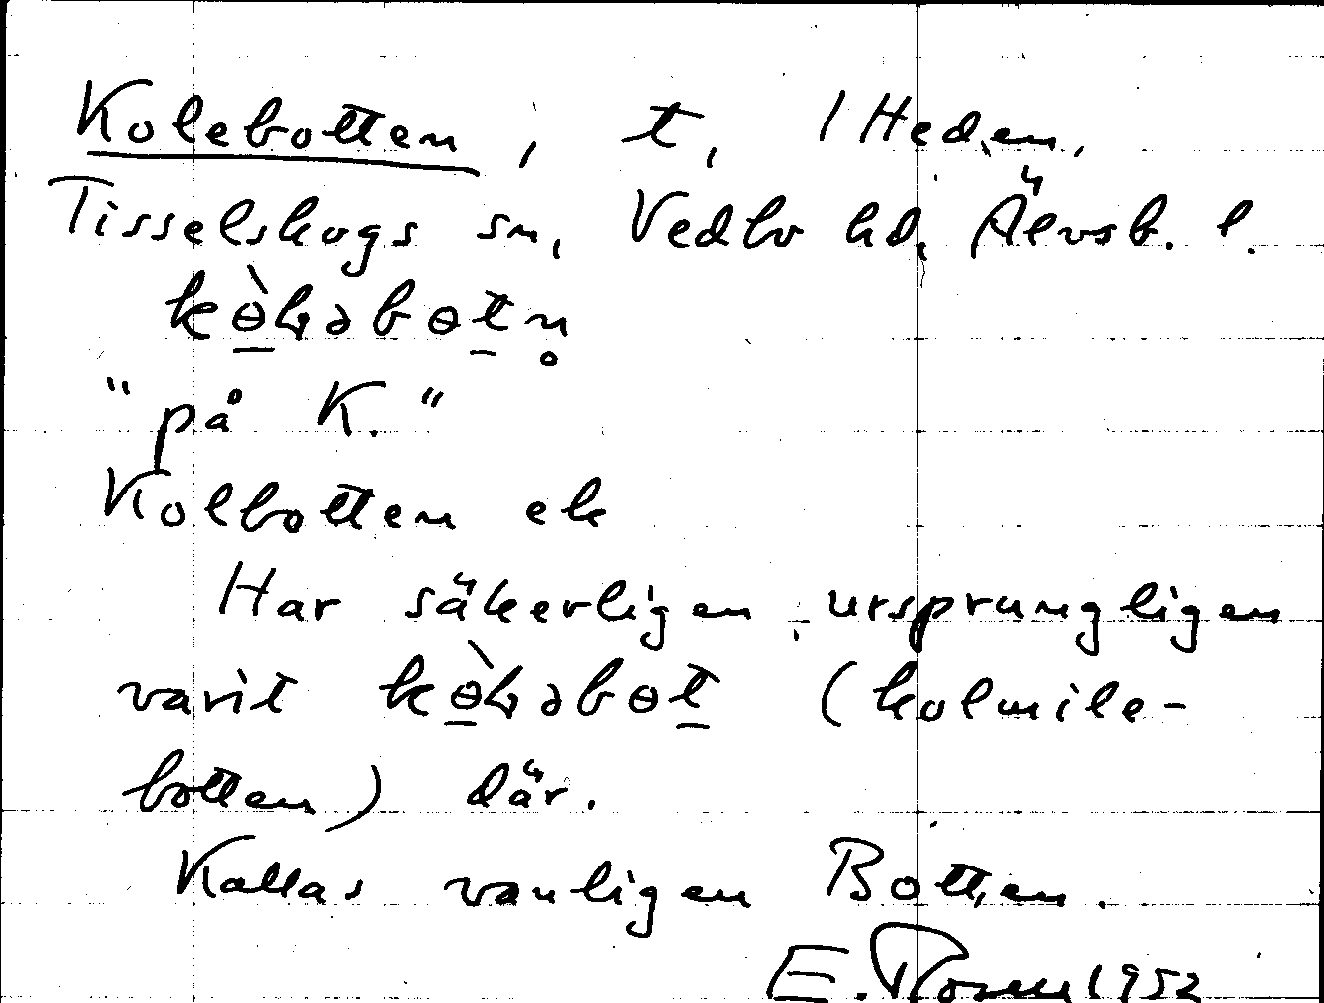 Kolebotten, t, 1 Heden,
Tisselskogs sn, Vedbo hd, Älvsb. l.
kɵ̀ɽəbɵtn̥
"på K."
Kolbotten ek
Har säkerligen ursprungligen
varit kɵ̀ɽəbɵt (kolmile-
botten) där.
Kallas vanligen Botten.
E. Rosen 1952